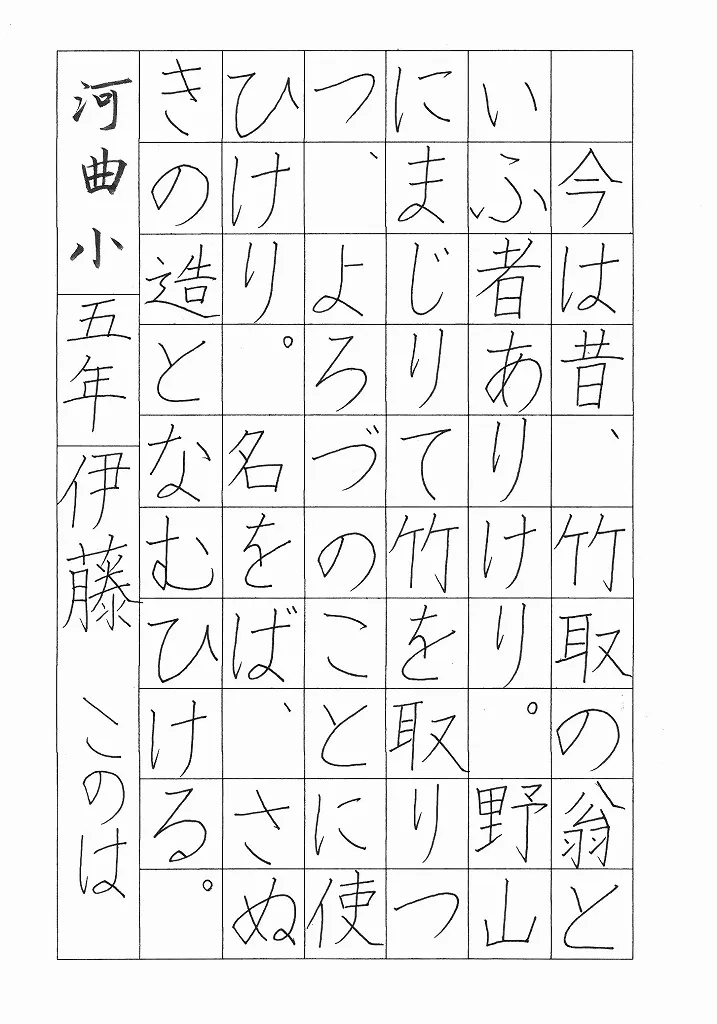 今は昔、竹取の翁と
いふ者ありけり。野山
にまじりて竹を取りつ
つ、よろづのことに使
ひけり。名をば、さぬ
きの造となむひける。
河曲小 五年 伊藤 このは